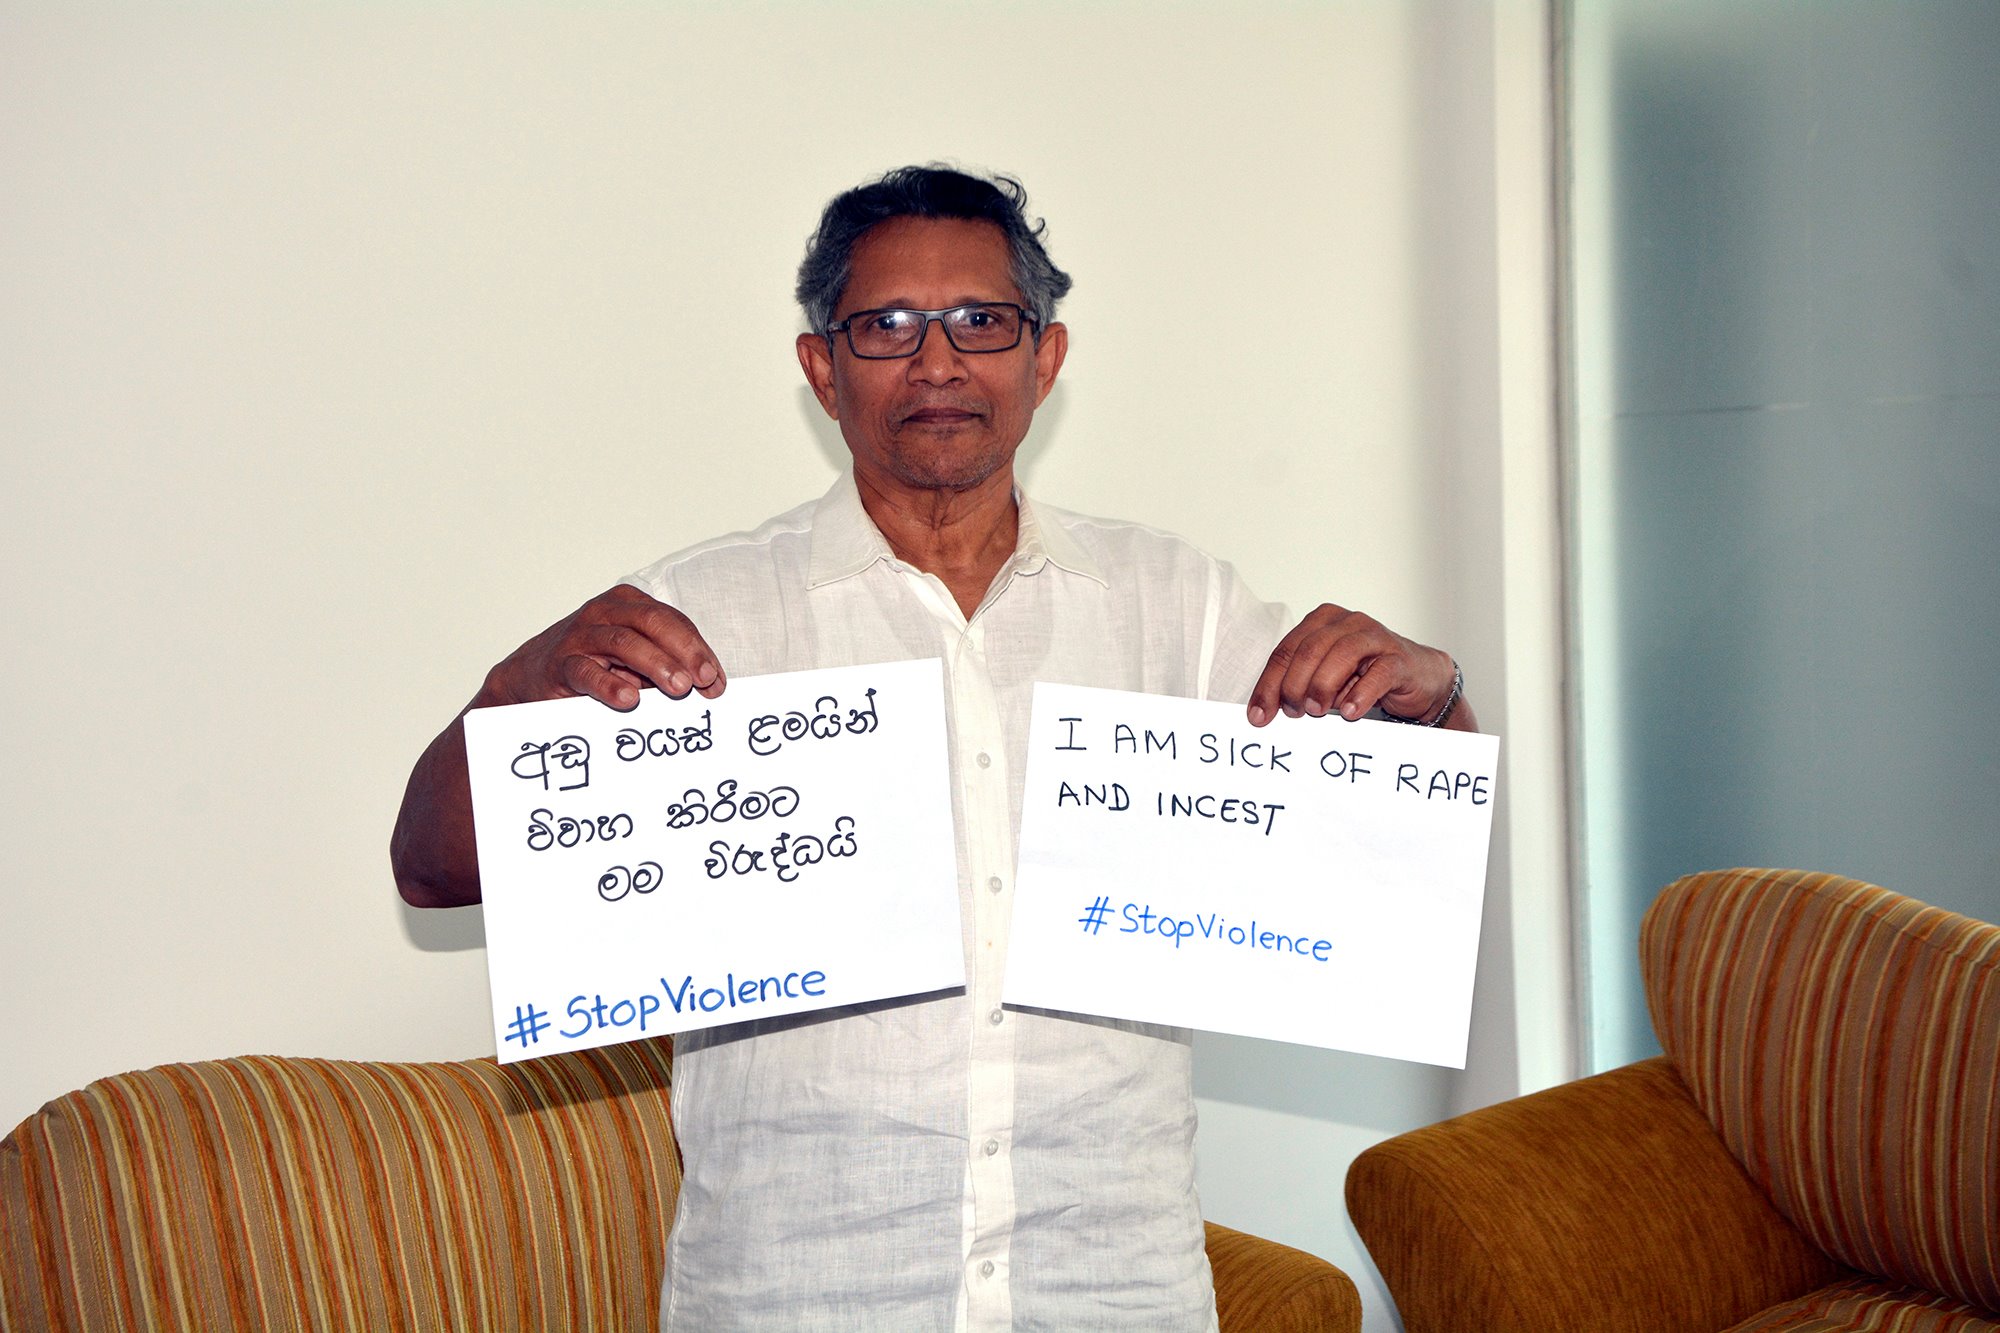 අඩු වයස් ළමයින්
විවාහ කිරීමට
මම විරුද්ධයි
#StopViolence
I AM SICK OF RAPE
AND INCEST
#StopViolence